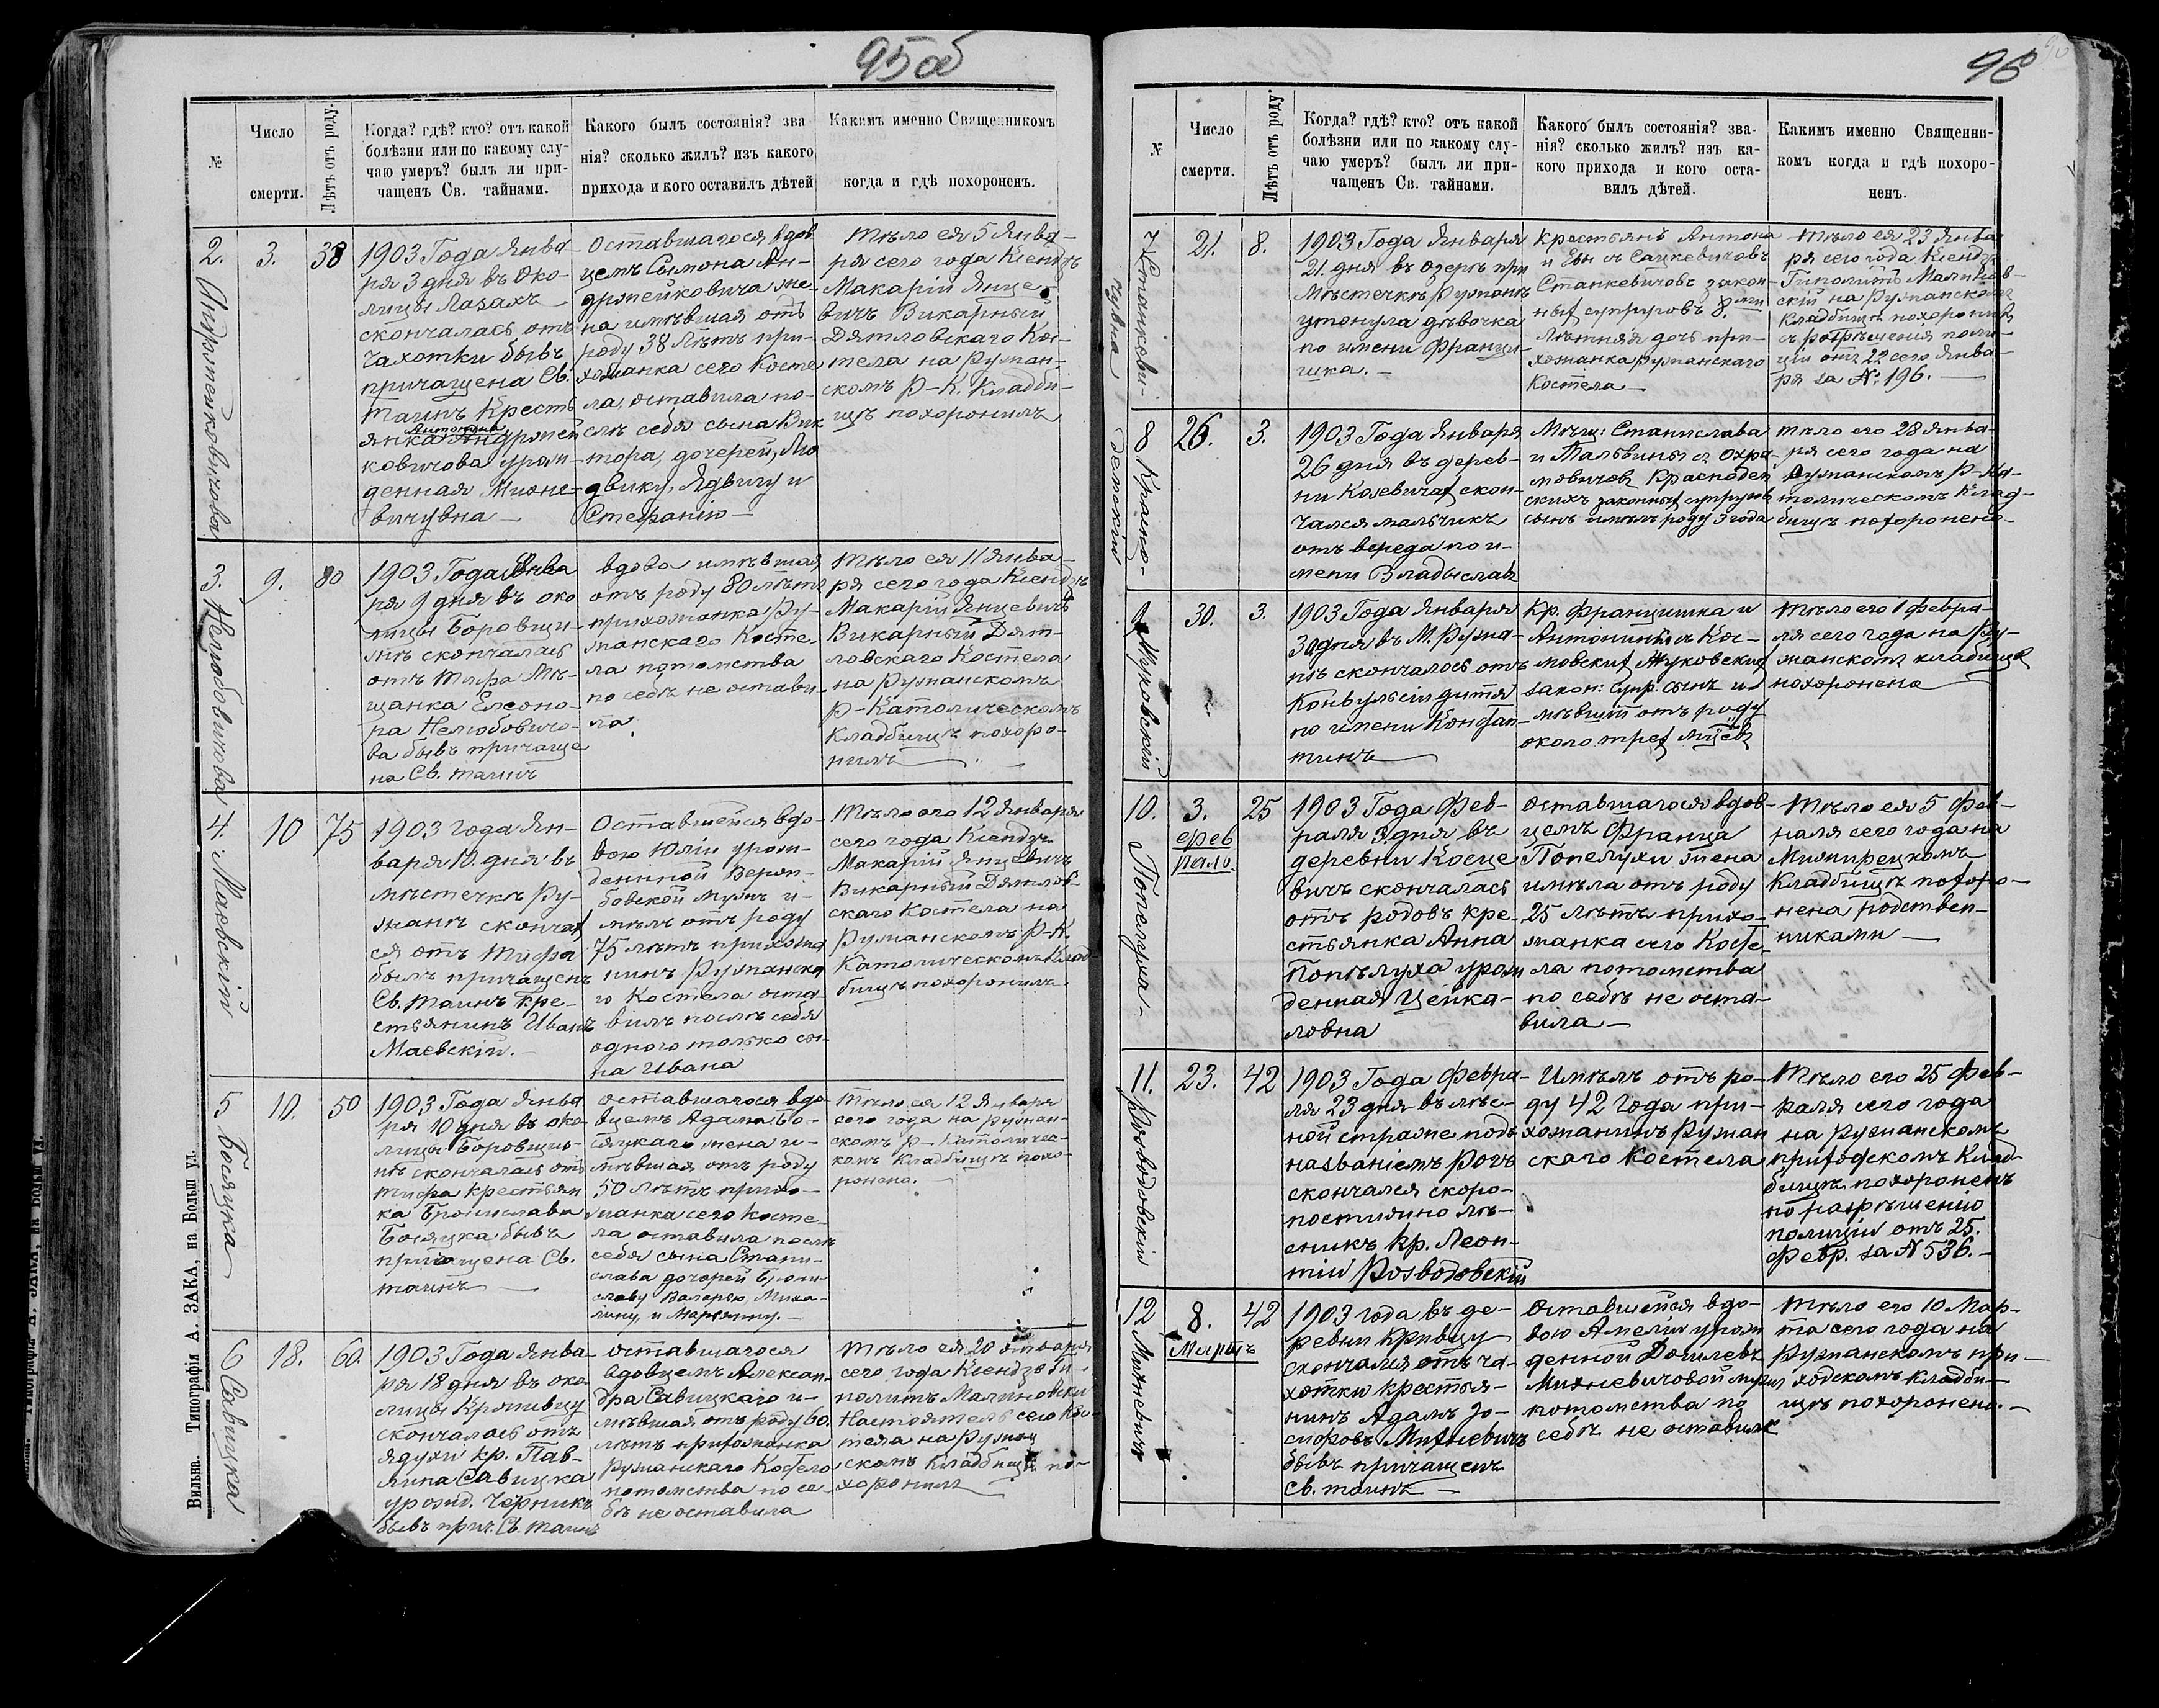 95 об
№
Число
смерти.
Лѣтъ отъ роду.
Когда? гдѣ? кто? отъ какой
болѣзни или по какому слу-
чаю умеръ? былъ ли при-
чащенъ Св. тайнами.
Какого былъ состоянія? зва
нія? сколько жилъ? изъ какого
прихода и кого оставилъ дѣтей
Какимъ именно Священникомъ
когда и гдѣ похороненъ.
2.
Андржейковичова
3.
38
1903 Года Янва-
ря 3 дня въ Око-
лицы Лазахъ
скончалась отъ
чахотки бывъ
причащена Св.
Таинъ Кресть
Антонина
янка Андржей
ковичова урож-
денная Мионе-
вичувна —
Оставшагося вдов
цемъ Сымона Ан-
држейковича же-
на имѣвшая отъ
роду 38 лѣтъ при-
хожанка сего Косте
ла, оставила по-
слѣ себя сына Вик
тора, дочерей, Лю
двику, Ядвигу и
Стефанію —
Тѣло ея 5 Янва-
ря сего года Ксендзъ
Макарій Янце-
вичъ Викарный
Дятловскаго Кос-
тела на Ружан-
скомъ Р-К. Кладби-
щѣ похоронилъ
3.
Нелюбовичова
9.
80
1903 Года Янва
ря 9 дня въ око
лицы Боровщи-
нѣ скончалась
отъ тифа Мѣ-
щанка Елеоно-
ра Нелюбовичо-
ва бывъ причаще
на Св. таинъ
вдова имѣвшая
отъ роду 80 лѣтъ
прихожанка Ру-
жанскаго Косте-
ла потомства
по себѣ не остави-
ла.
Тѣло ея 11 Янва-
ря сего года Ксендзъ
Макарій Янцевичъ
Викарный Дят-
ловскаго Костела
на Ружанскомъ
Р-Католическомъ
Кладбищѣ похоро-
нилъ —
4.
Маевскій
10
75
1903 года Ян-
варя 10. дня въ
мѣстечкѣ Ру-
жанѣ скончал
ся отъ тифа
былъ причащенъ
Св. таинъ кре-
стьянинъ Иванъ
Маевскій. —
Оставшейся вдо-
вою Юліи урож-
денной Верем-
бовской мужъ и-
мѣлъ отъ роду
75 лѣтъ прихожа
нинъ Ружанска
го Костела оста-
вилъ послѣ себя
одного только сы-
на Ивана
Тѣло его 12 Января
сего года Ксендзъ
Макарій Янцевичъ
Викарный Дятлов-
скаго Костела на
Ружанскомъ Р-К.
Католическомъ Клад-
бищѣ похоронилъ
5
Босяцка
10.
50
1903 Года Янва
ря 10 дня въ око
лицы Боровщи-
нѣ скончалась отъ
тифа крестьян
ка Брониславa
Босяцка бывъ
причащена Св.
таинъ —
оставшагося вдо-
вцемъ Адама Бо-
сяцкаго жена и-
мѣвшая отъ роду
50 лѣтъ прихо-
жанка сего Косте-
ла оставила послѣ
себя сына Стани-
слава дочерей Брони-
славу Валерію, Миха-
лину, и Марьянну. —
Тѣло ея 12 Января
сего года на ружан-
скомъ р-Католичес-
комъ Кладбищѣ похо-
ронено. —
6
Савицка
18.
60.
1903 Года Янва
ря 18 дня въ око
лицы Кропивцу
скончалась отъ
ядухи кр. Пав-
лина Савицка
урожд. Черникъ
бывъ прич. Св. таинъ
оставшагося
вдовцемъ Алексан-
дра Савицкаго и-
мѣвшая отъ роду 60.
лѣтъ прихожанка
ружанскаго Костела
потомства по се
бѣ не оставила
Тѣло ея 20 Января
сего года Ксендзъ Ги-
политъ Малиновскій
Настоятель сего Кос-
тела на Ружан
скомъ Кладбищѣ по-
хоронилъ —
Вильна. Типографія А. ЗАКА, на Больш ул.
96
№
Число
смерти.
Лѣтъ отъ роду.
Когда? гдѣ? кто? отъ какой
болѣзни или по какому слу-
чаю умеръ? былъ ли при-
чащенъ Св. тайнами.
Какого былъ состоянія? зва-
нія? сколько жилъ? изъ ка-
кого прихода и кого оста-
вилъ дѣтей.
Какимъ именно Священни-
комъ когда и гдѣ похоро-
ненъ.
7
Станкеви-
чувна
21.
8.
1903 Года Января
21. дня въ озерѣ при
Мѣстечкѣ Ружанѣ
утонула дѣвочка
по имени Франци-
шка. —
Крестьянъ Антона
и Евы съ Сацкевичовъ
Станкевичовъ закон-
ных супруговъ 8.ми
лѣтняя дочь при-
хожанка ружанскаго
Костела —
Тѣло ея 23 Янва
ря сего года Ксендзъ
Гиполитъ Малинов-
скій на Ружанскомъ
Кладбищѣ похоронилъ
съ разрѣшенія поли-
ціи отъ 22 сего Янва-
ря за № 196. —
8
Красно-
дембскій
26.
3.
1903 Года Января
26 дня въ дерев-
ни Козевичах скон-
чался мальчикъ
отъ вереда по и-
мени Владыславъ
Мѣщ: Станислава
и Мальвины съ Охра-
мовичов Краснодем
скихъ законных супругов
сынъ имѣлъ роду 3 года
Тѣло его 28 Янва-
ря сего года на
Ружанскомъ Р-Ка-
толическомъ Клад-
бищѣ похоронено-
9
Жуковскій
30.
3.
1903 Года Января
30 дня въ М. Ружа-
нѣ скончалось отъ
Конвульсіи дитя
по имени Констан-
тинъ —
Кр. Францишка и
Антонины съ Кос-
мовских Жуковских
закон: супр. сынъ и-
мѣвшій отъ роду
около трех мѣсяц
Тѣло его 1 Февра-
ля сего года на Ру-
жанском кладбищѣ
похоронено —
10.
Попелуха
3.
Фев
раль.
25
1903 Года Фев-
раля 3 дня въ
деревни Косце
вичъ скончалась
отъ родовъ кре-
стьянка Анна
Попѣлуха урож
денная Цейка-
ловна
Оставшагося вдов-
цемъ Франца
Попелухи жена
имѣла отъ роду
25 лѣтъ прихо-
жанка сего Косте-
ла потомства
по себѣ не оста-
вила —
Тѣло ея 5 Фев-
раля сего года на
Мижирецкомъ
Кладбищѣ похоро-
нена родствен-
никами —
11.
Розводовскій
23.
42
1903 Года Февра-
ля 23 дня въ лѣс-
ной страже подъ
названіемъ Ровъ
скончался скоро-
постижно лѣ-
сникъ кр. Леон-
тій Розводовскій
Имѣлъ отъ ро-
ду 42 года при-
хожанинъ Ружан
скаго Костела
Тѣло его 25 Фев-
раля сего года
на Ружанскомъ
приходскомъ Клад-
бищѣ похороненъ
по разрѣшенію
полиціи отъ 25.
Февр. за № 536. —
12
Михневичъ
8.
Мартъ
42
1903 года въ де-
ревни Кривцу
скончался отъ ча-
хотки крестья-
нинъ Адамъ Іо-
сифовъ Михневичъ
бывъ причащенъ
Св. таинъ —
Оставшейся вдо-
вою Амеліи урож
денной Догилевъ
Михневичовой мужъ
потомства по
себѣ не оставилъ
Тѣло его 10 Мар-
та сего года на
Ружанскомъ при-
ходскомъ Кладби-
щѣ похоронено. —